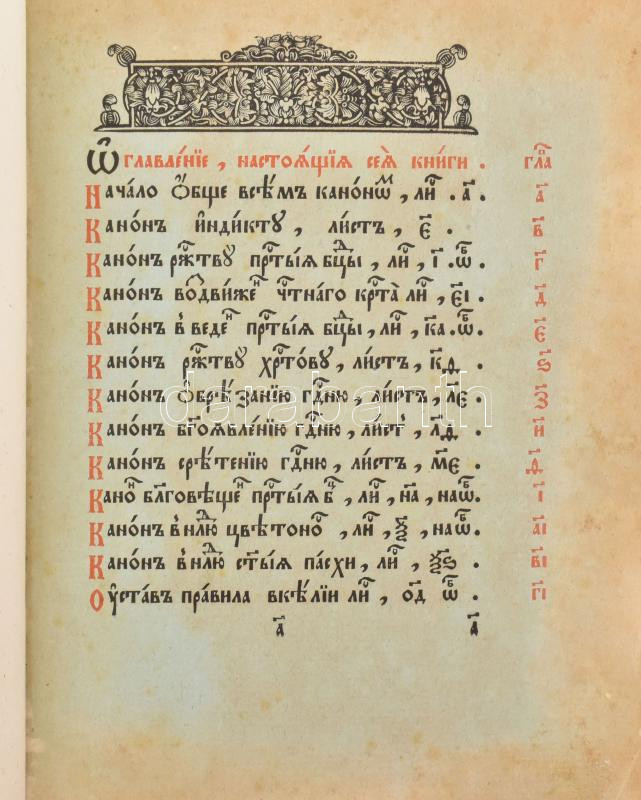 Ѡ҆главле́нїе, настоѧ́щїѧ сеѧ̀ кни́ги. гла҃
Нача́ло ѻ҆́бще всѣ́мъ канѡнѡ́м, ли́ст. а҃. а҃
Кано́нъ и҆нди́кту, ли́стъ, є҃. в҃
Кано́нъ ржⷭ҇тву̀ прⷭ҇ты́ѧ бцⷣы, ли́ст, і҃. ѡб. г҃
Кано́нъ воздви́жен чⷭ҇тна́го крⷭ҇та̀ ли́ст, є҃і. д҃
Кано́нъ в введе́н прⷭ҇ты́ѧ бцⷣы, ли́ст, к҃а. ѡб. є҃
Кано́нъ ржⷭ҇тву̀ хрⷭ҇то́ву, ли́стъ, к҃ѳ. ѕ҃
Кано́нъ ѻ҆брѣ́занїю гдⷭ҇ню, ли́стъ, л҃є. з҃
Кано́нъ бг҃оѧвле́нїю гдⷭ҇ню, ли́стъ, л҃ѳ. и҃
Кано́нъ срѣ́тенїю гдⷭ҇ню, ли́стъ, м҃є. ѳ҃
Кано́н блгⷭ҇овѣ́щен прⷭ҇ты́ѧ бцⷣ, ли́ст, н҃а, наѡб. і҃
Кано́нъ в нлⷣю цвѣтоно́с, ли́ст, наѡб. а҃і
Кано́нъ в нлⷣю ст҃ы́ѧ па́схи, ли́ст, ѯ҃ѕ. в҃і
Оу҆ста́въ пра́вила в ке́лїи ли́ст, о҃д ѡб. г҃і
а҃ а҃
darabanth